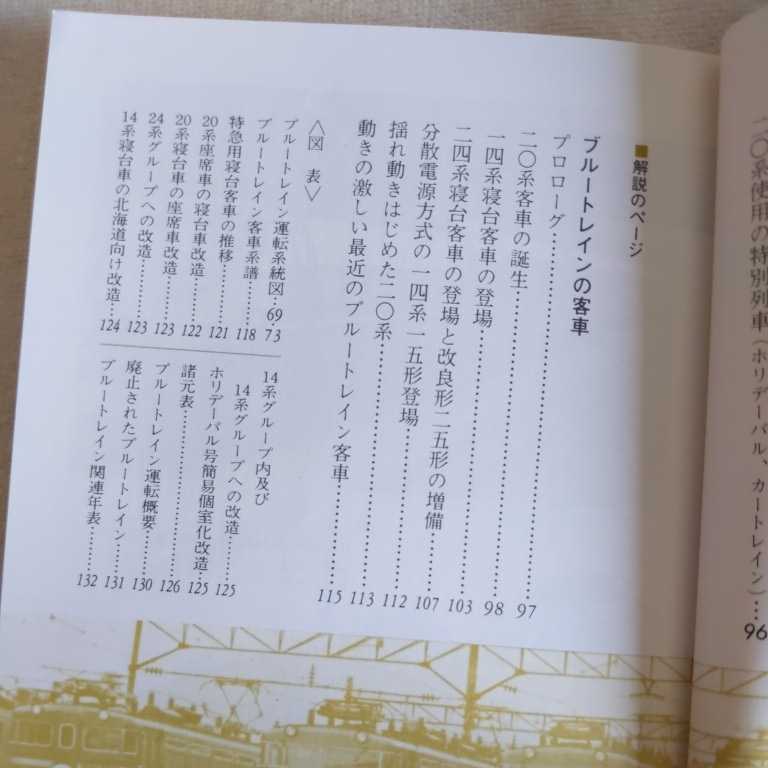 二〇系使用の特別列車(ホリデーパル、カートレイン)…96
■解説のページ
ブルートレインの客車
プロローグ……………………97
二〇系客車の誕生……………………98
一四系寝台客車の登場……………………103
二四系寝台客車の登場と改良形二五形の増備……………107
分散電源方式の一四系一五形登場……………112
揺れ動きはじめた二〇系……………………113
動きの激しい最近のブルートレイン客車…………115
〈図 表〉
ブルートレイン運転系統図…69・73
ブルートレイン客車系譜……118
特急用寝台客車の推移……121
20系座席車の寝台車改造……122
20系寝台車の座席車改造……123
24系グループへの改造……123
14系寝台車の北海道向け改造…124
14系グループ内及び
14系グループへの改造……125
ホリデーパル号簡易個室化改造…125
諸元表……………………126
ブルートレイン運転概要……130
廃止されたブルートレイン……131
ブルートレイン関連年表……132